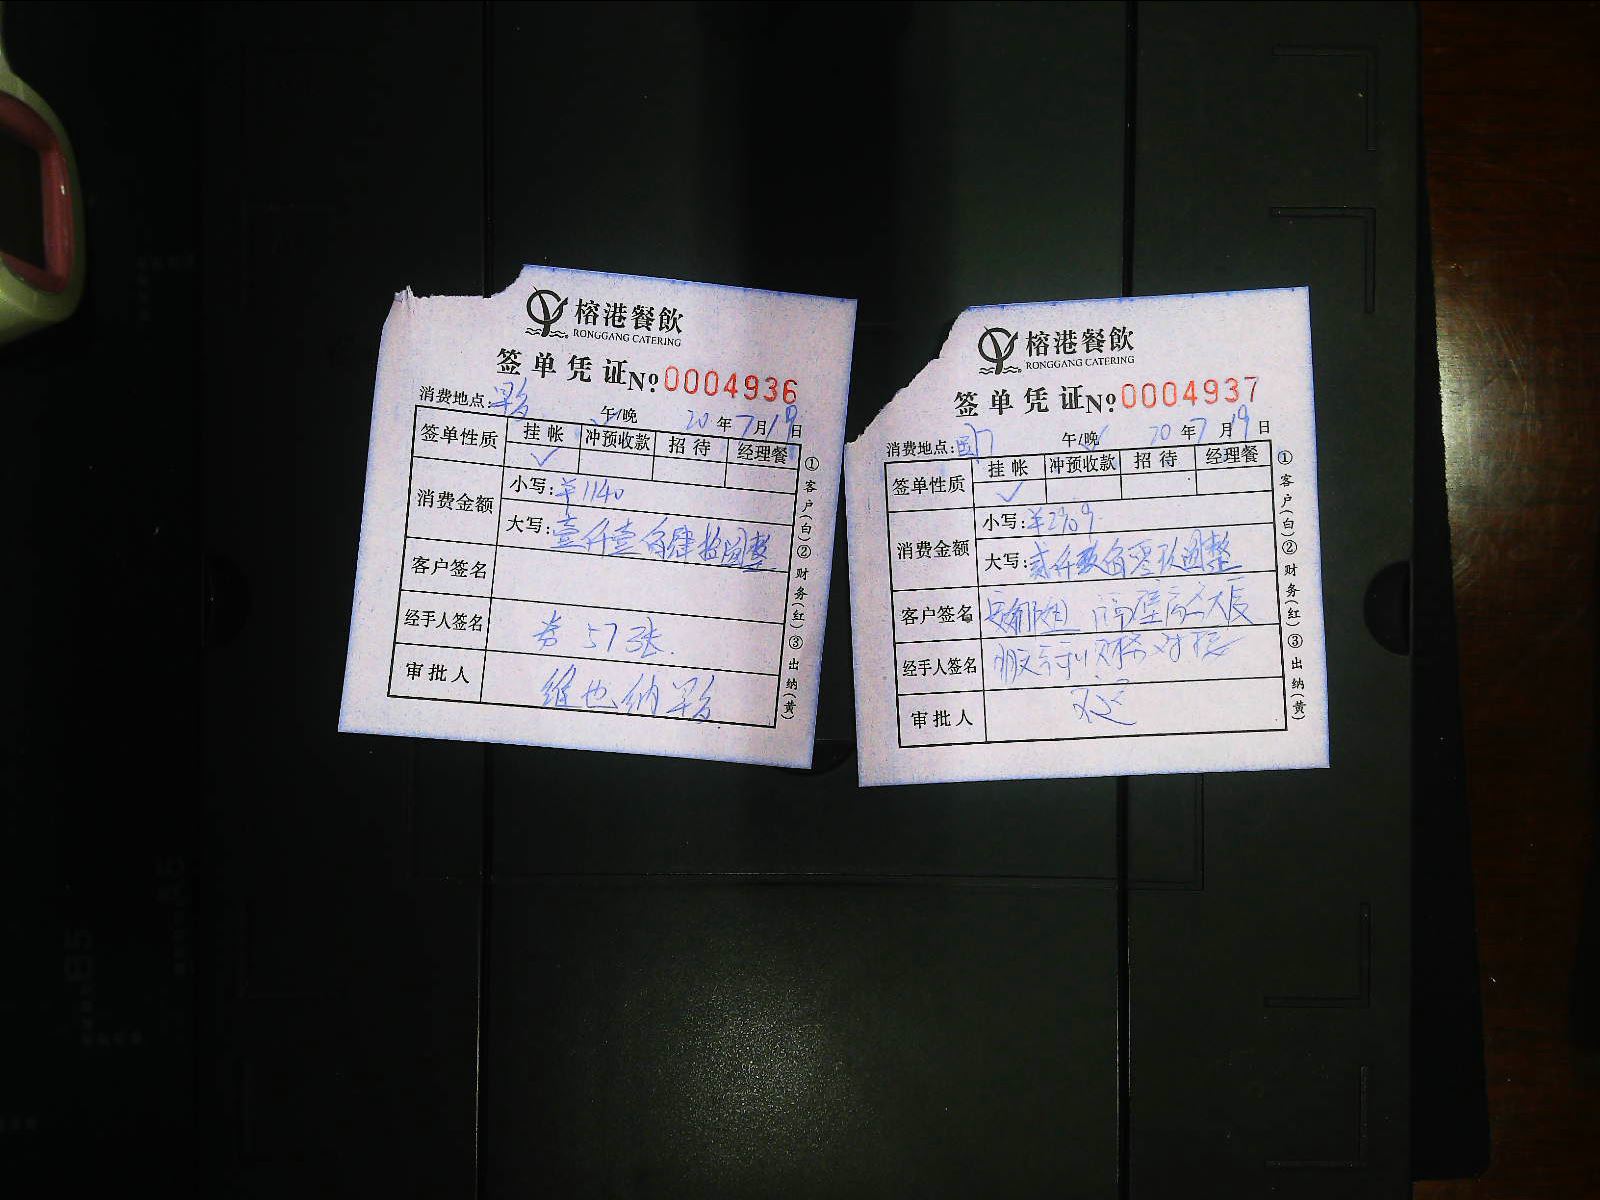 榕港餐飲
RONGGANG CATERING
签单凭证№0004936
消费地点:早餐 午/晚 20年7月19日
签单性质 挂帐 冲预收款 招待 经理餐
✓
消费金额 小写:¥1140
大写:壹仟壹佰肆拾圆整
客户签名
经手人签名 券57张.
审批人 维也纳早餐
①客户(白)②财务(红)③出纳(黄)
榕港餐飲
RONGGANG CATERING
签单凭证№0004937
消费地点: 午/晚 20年7月19日
签单性质 挂帐 冲预收款 招待 经理餐
✓
消费金额 小写:¥2909
大写:贰仟玖佰零玖圆整
客户签名
经手人签名
审批人
①客户(白)②财务(红)③出纳(黄)